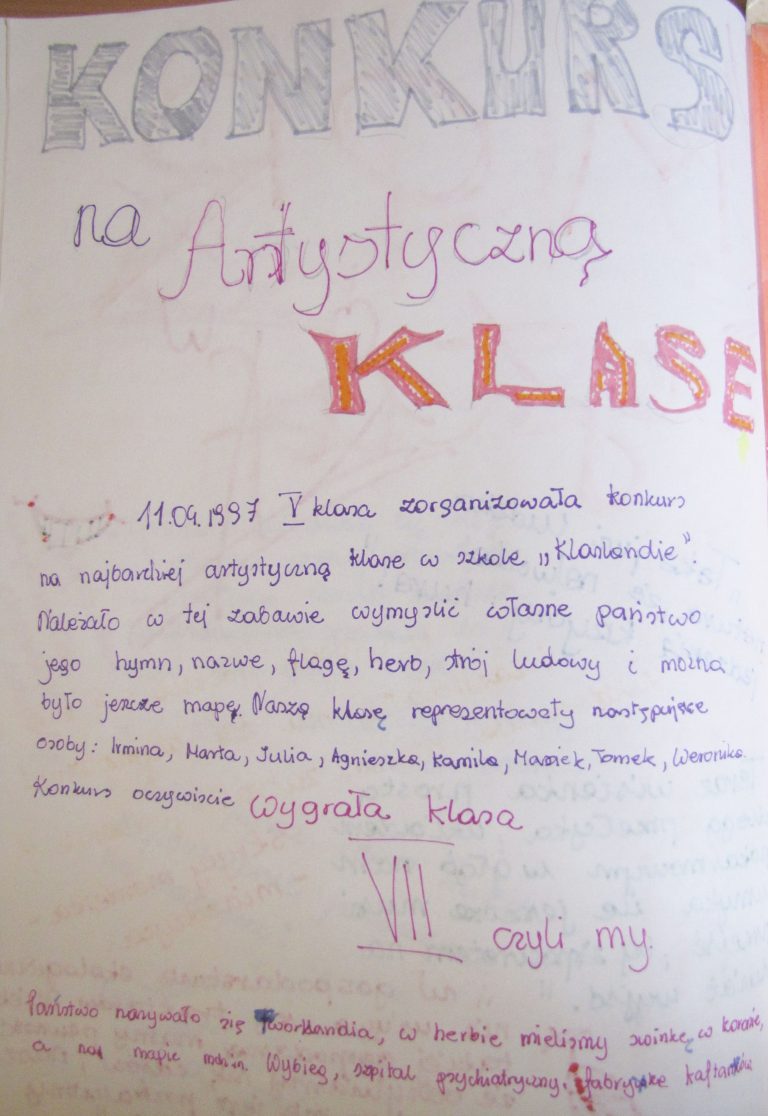 KONKURS
na Artystyczną
KLASĘ
11.04.1997 V klasa zorganizowała konkurs
na najbardziej artystyczną klase w szkole „Klaslandie".
Należało w tej zabawie wymyslić własne państwo
jego hymn, nazwe, flagę, herb, strój ludowy i można
było jeszcze mapę. Naszą klasę reprezentowały następujące
osoby: Irmina, Marta, Julia, Agnieszka, Kamila, Maciek, Tomek, Weronika.
Konkurs oczywiscie wygrała klasa
VII
czyli my.
Państwo nazywało się Tworklandia, w herbie mielismy swinkę w koronie,
a na mapie m.in. Wybieg, szpital psychiatryczny, fabrykę kaftanów